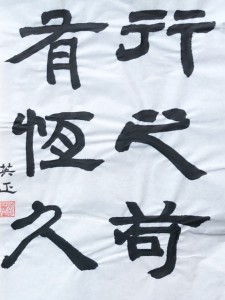 行之苟
有恆久
英正